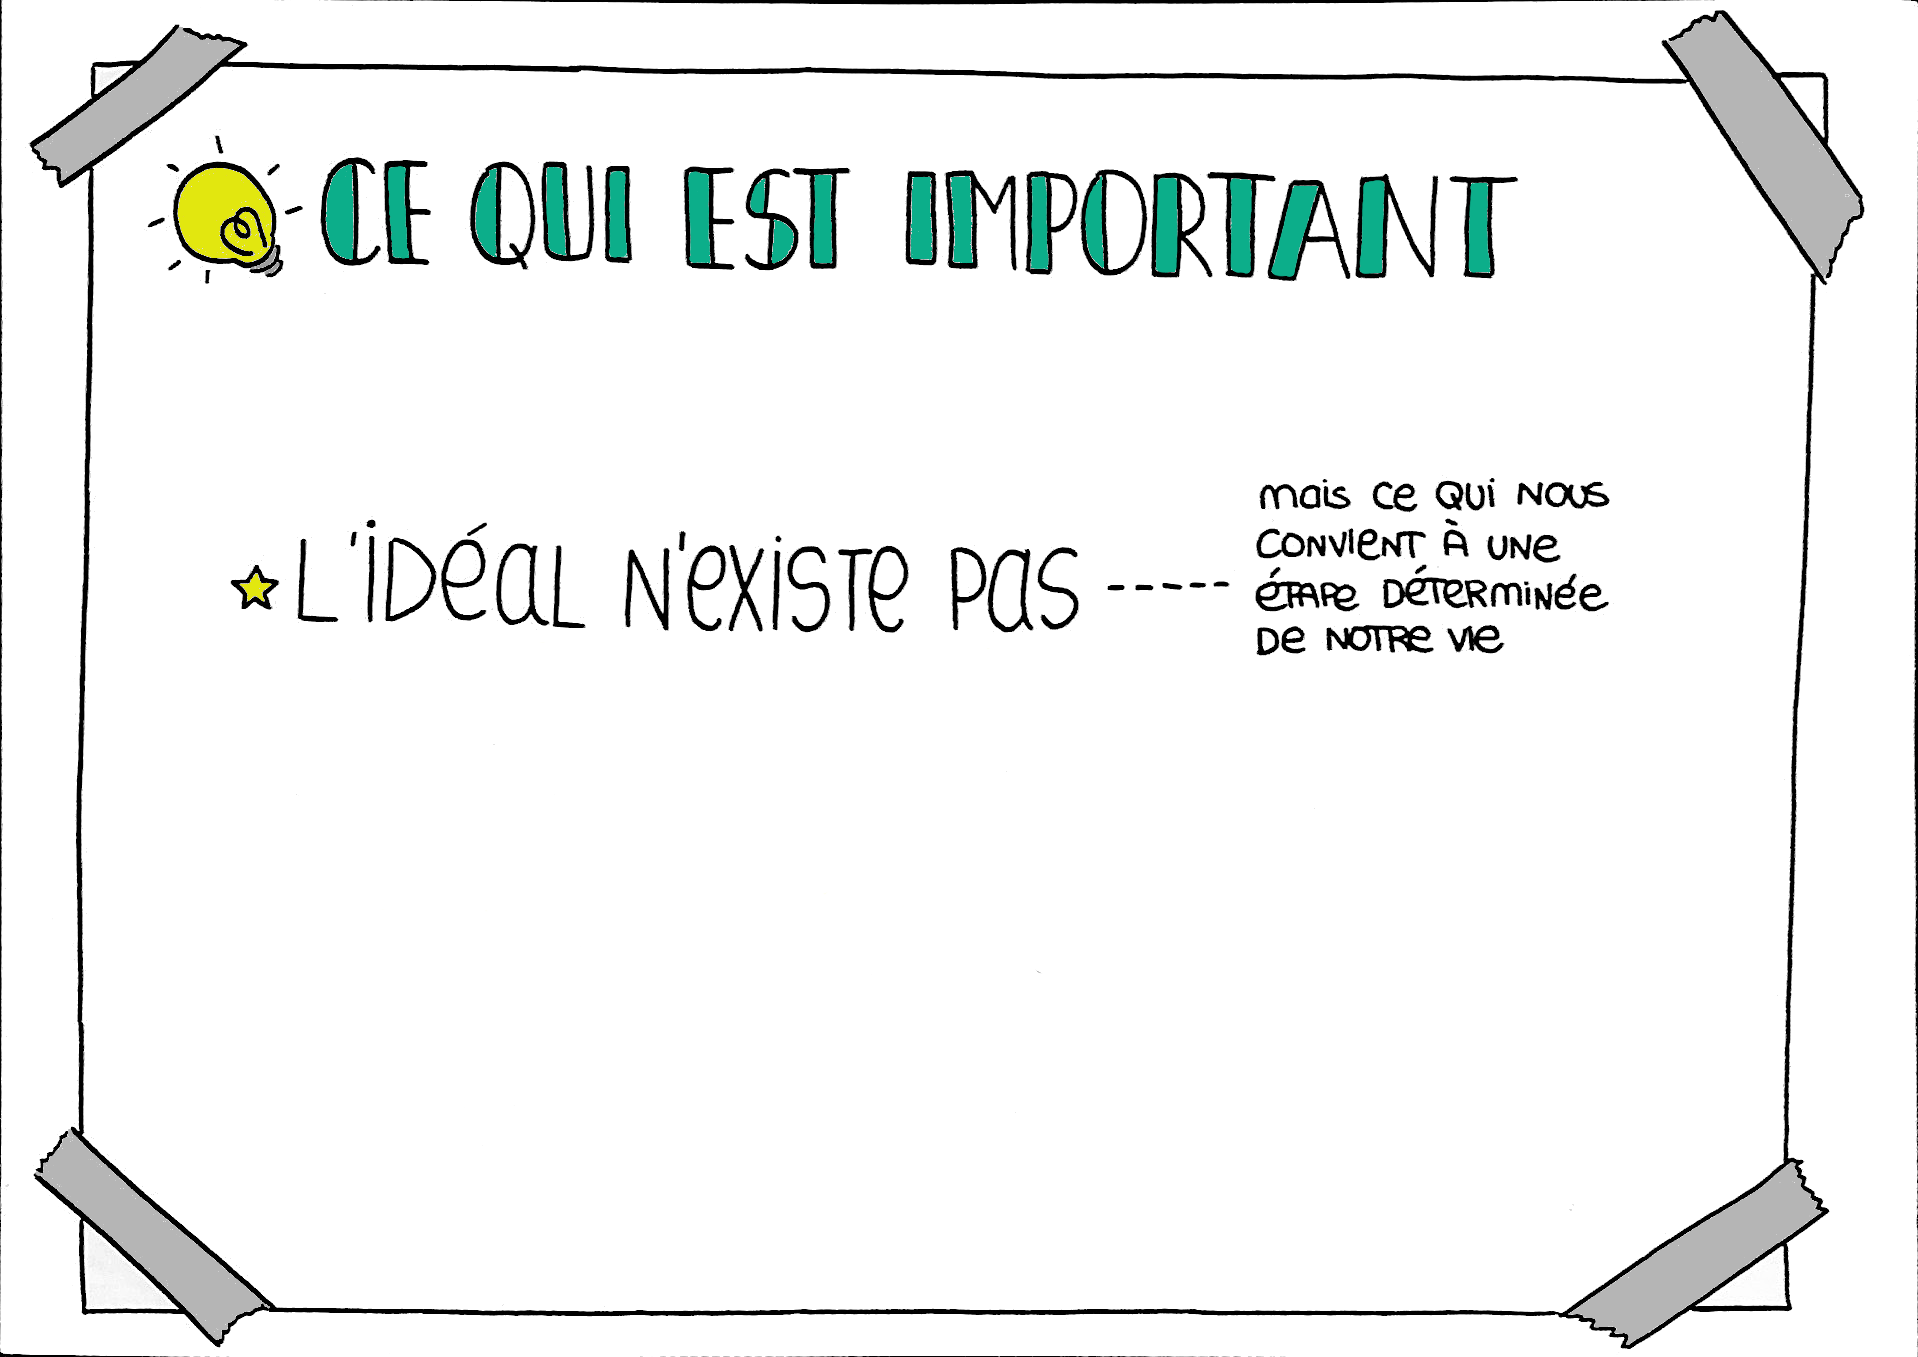 CE QUI EST IMPORTANT
L'IDÉAL N'EXISTE PAS -----
mais ce qui nous
convient à une
étape déterminée
de notre vie